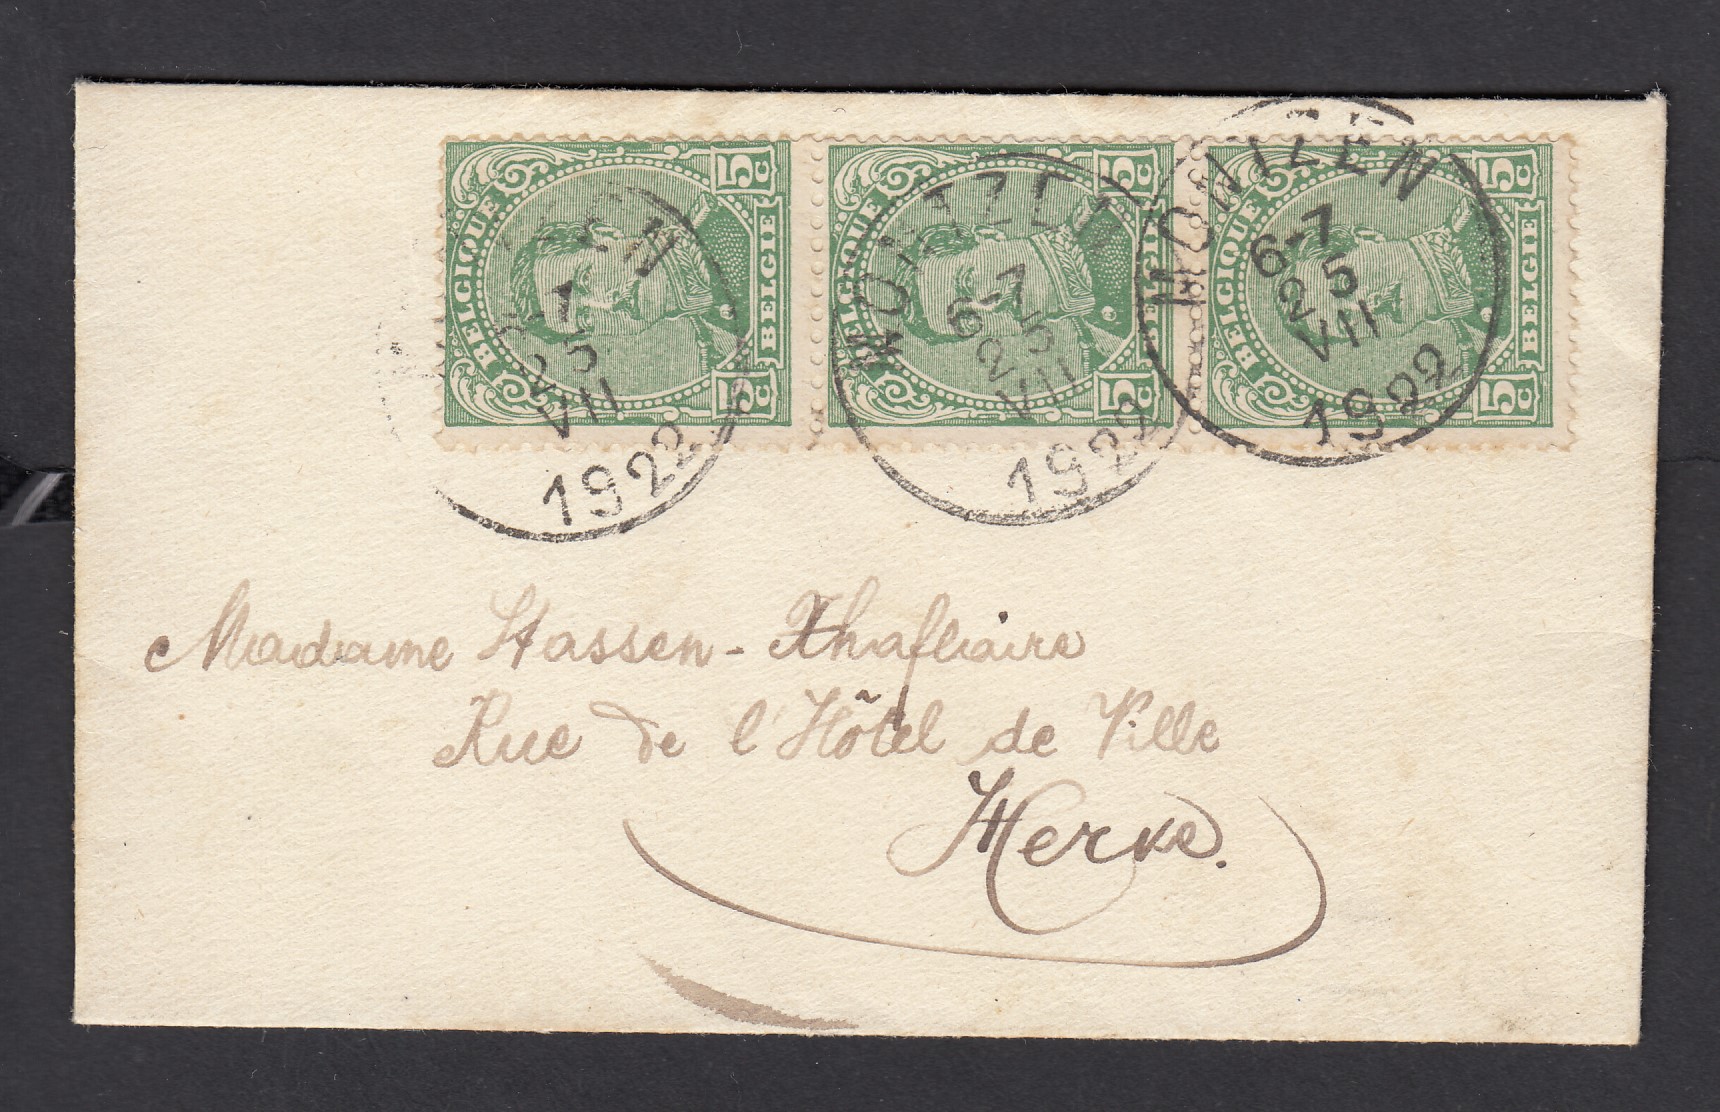 5c 5c 5c
BELGIQUE BELGIE BELGIQUE BELGIE BELGIQUE BELGIE
5c 5c 5c
ZEN
6-7
25
VII
1922
MONTZEN
6-7
25
VII
1922
MONTZEN
6-7
25
VII
1922
Madame Hassen - Xhaflaire
Rue de l'Hôtel de Ville
Herve.